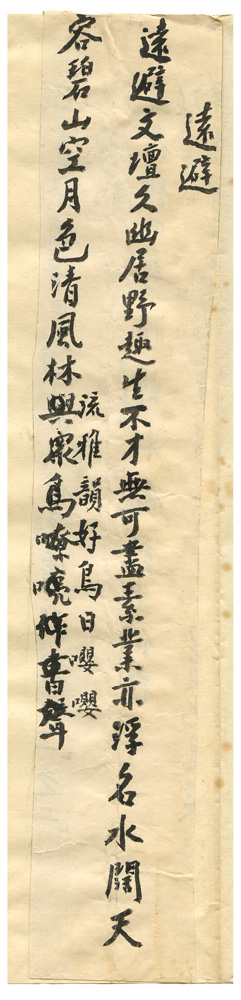 遠避
遠避文壇久幽居野趣生不才無可盡素業亦浮名水闊天
流雅韻好鳥日嚶嚶
容碧山空月色清風林與衆鳥嘹喨作書聲